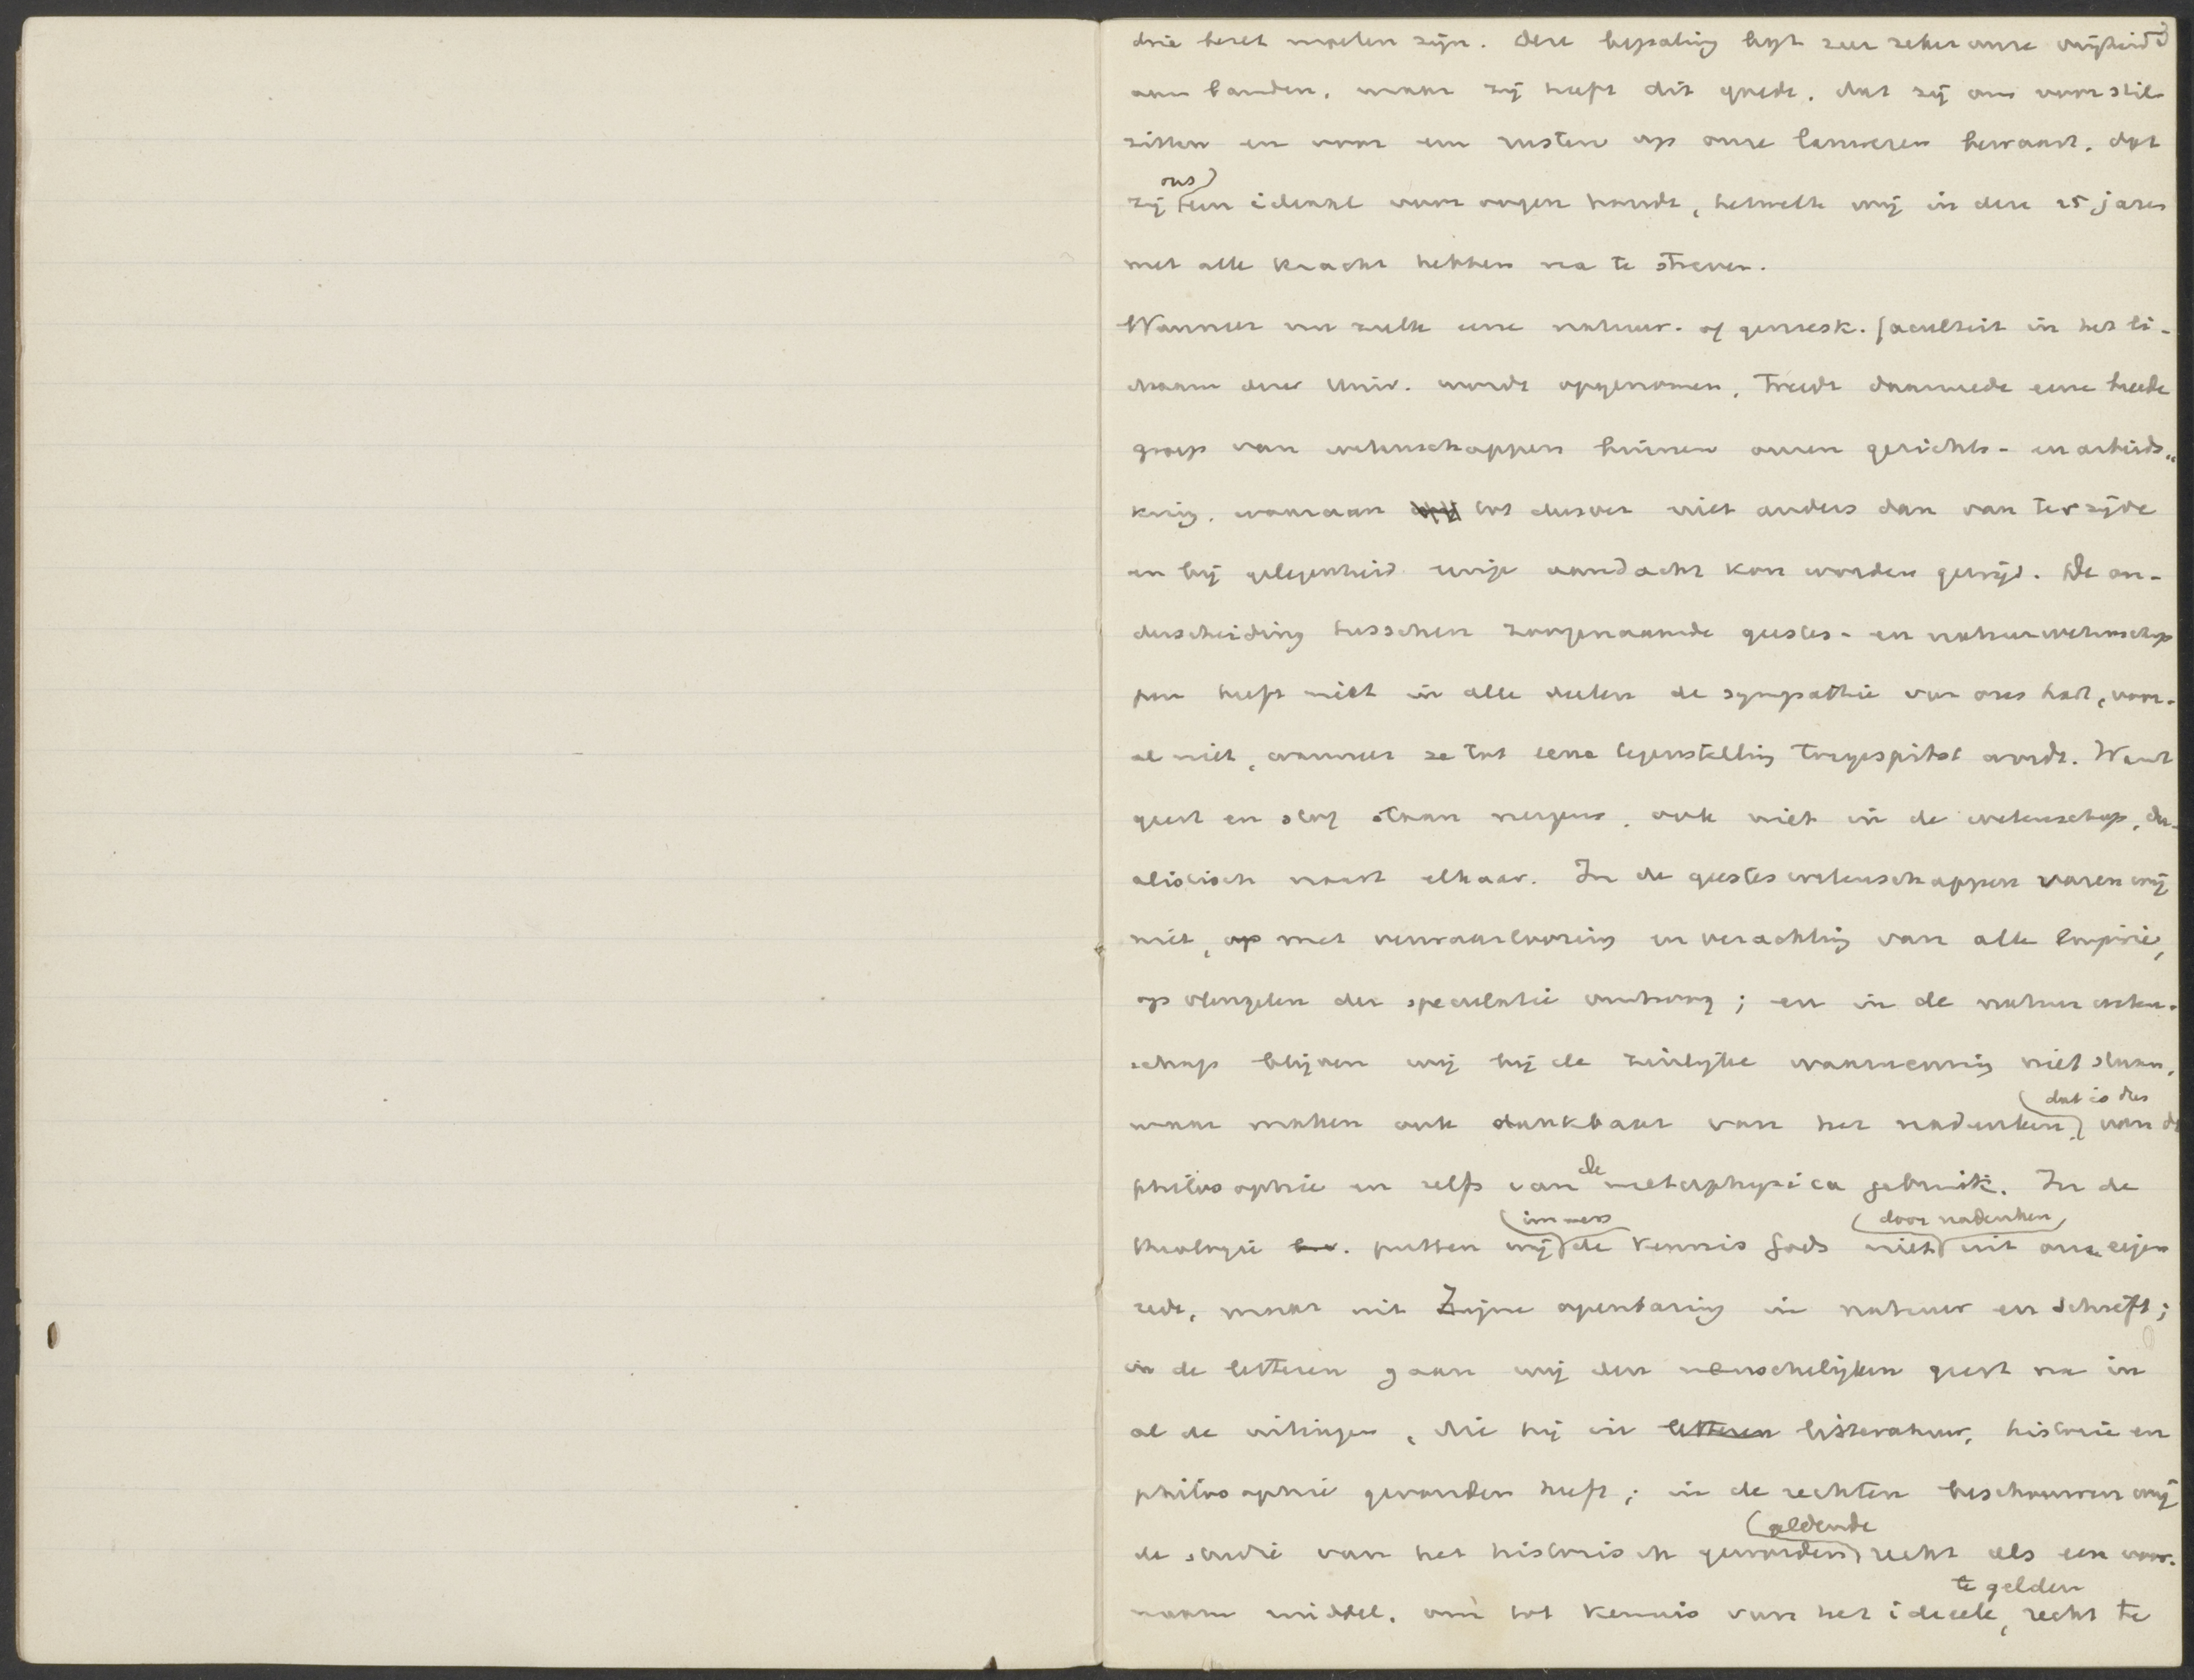 drie bezet moeten zijn. Deze bepaling legt zeer zeker onze vrijheid
aan banden, maar zij heeft dit goede, dat zij ons voor stil
zitten en voor een rusten op onze lauweren bewaart, dat
zij ons een ideaal voor oogen houdt, hetwelk wij in deze 25 jaren
met alle kracht hebben na te streven.
Wanneer nu zulk eene natuur- of geneesk. faculteit in het li-
chaam der Univ. wordt opgenomen, treedt daarmede eene breede
groep van wetenschappen binnen onzen gezichts- en arbeids-
kring, waaraan tot dusver niet anders dan van terzijde
en bij gelegenheid eenige aandacht kon worden gewijd. De on-
derscheiding tusschen zoogenaamde geestes- en natuurwetenschap
pen heeft niet in alle deelen de sympathie van ons hart, voor-
al niet, wanneer ze tot eene tegenstelling toegespitst wordt. Want
geest en stof staan nergens, ook niet in de wetenschap, du-
alistisch naast elkaar. In de geesteswetenschappen varen wij
niet, op met verwaarloozing en verachting van alle empirie,
op vleugelen der speculatie omhoog; en in de natuurweten-
schap blijven wij bij de zinlijke waarneming niet staan,
maar maken ook dankbaar van het nadenken, dat is dus van de
philosophie en zelfs van de metaphysica gebruik. In de
theologie b.v. putten wij immers de kennis Gods niet door nadenken uit onze eigen
rede, maar uit Zijne openbaring in natuur en Schrift;
in de letteren gaan wij den menschelijken geest na in
al de uitingen, die hij in letteren litteratuur, historie en
philosophie gevonden heeft; in de rechten beschouwen wij
de studie van het historisch geworden geldende recht als een voor-
naam middel, om tot kennis van het ideeele, te gelden recht te